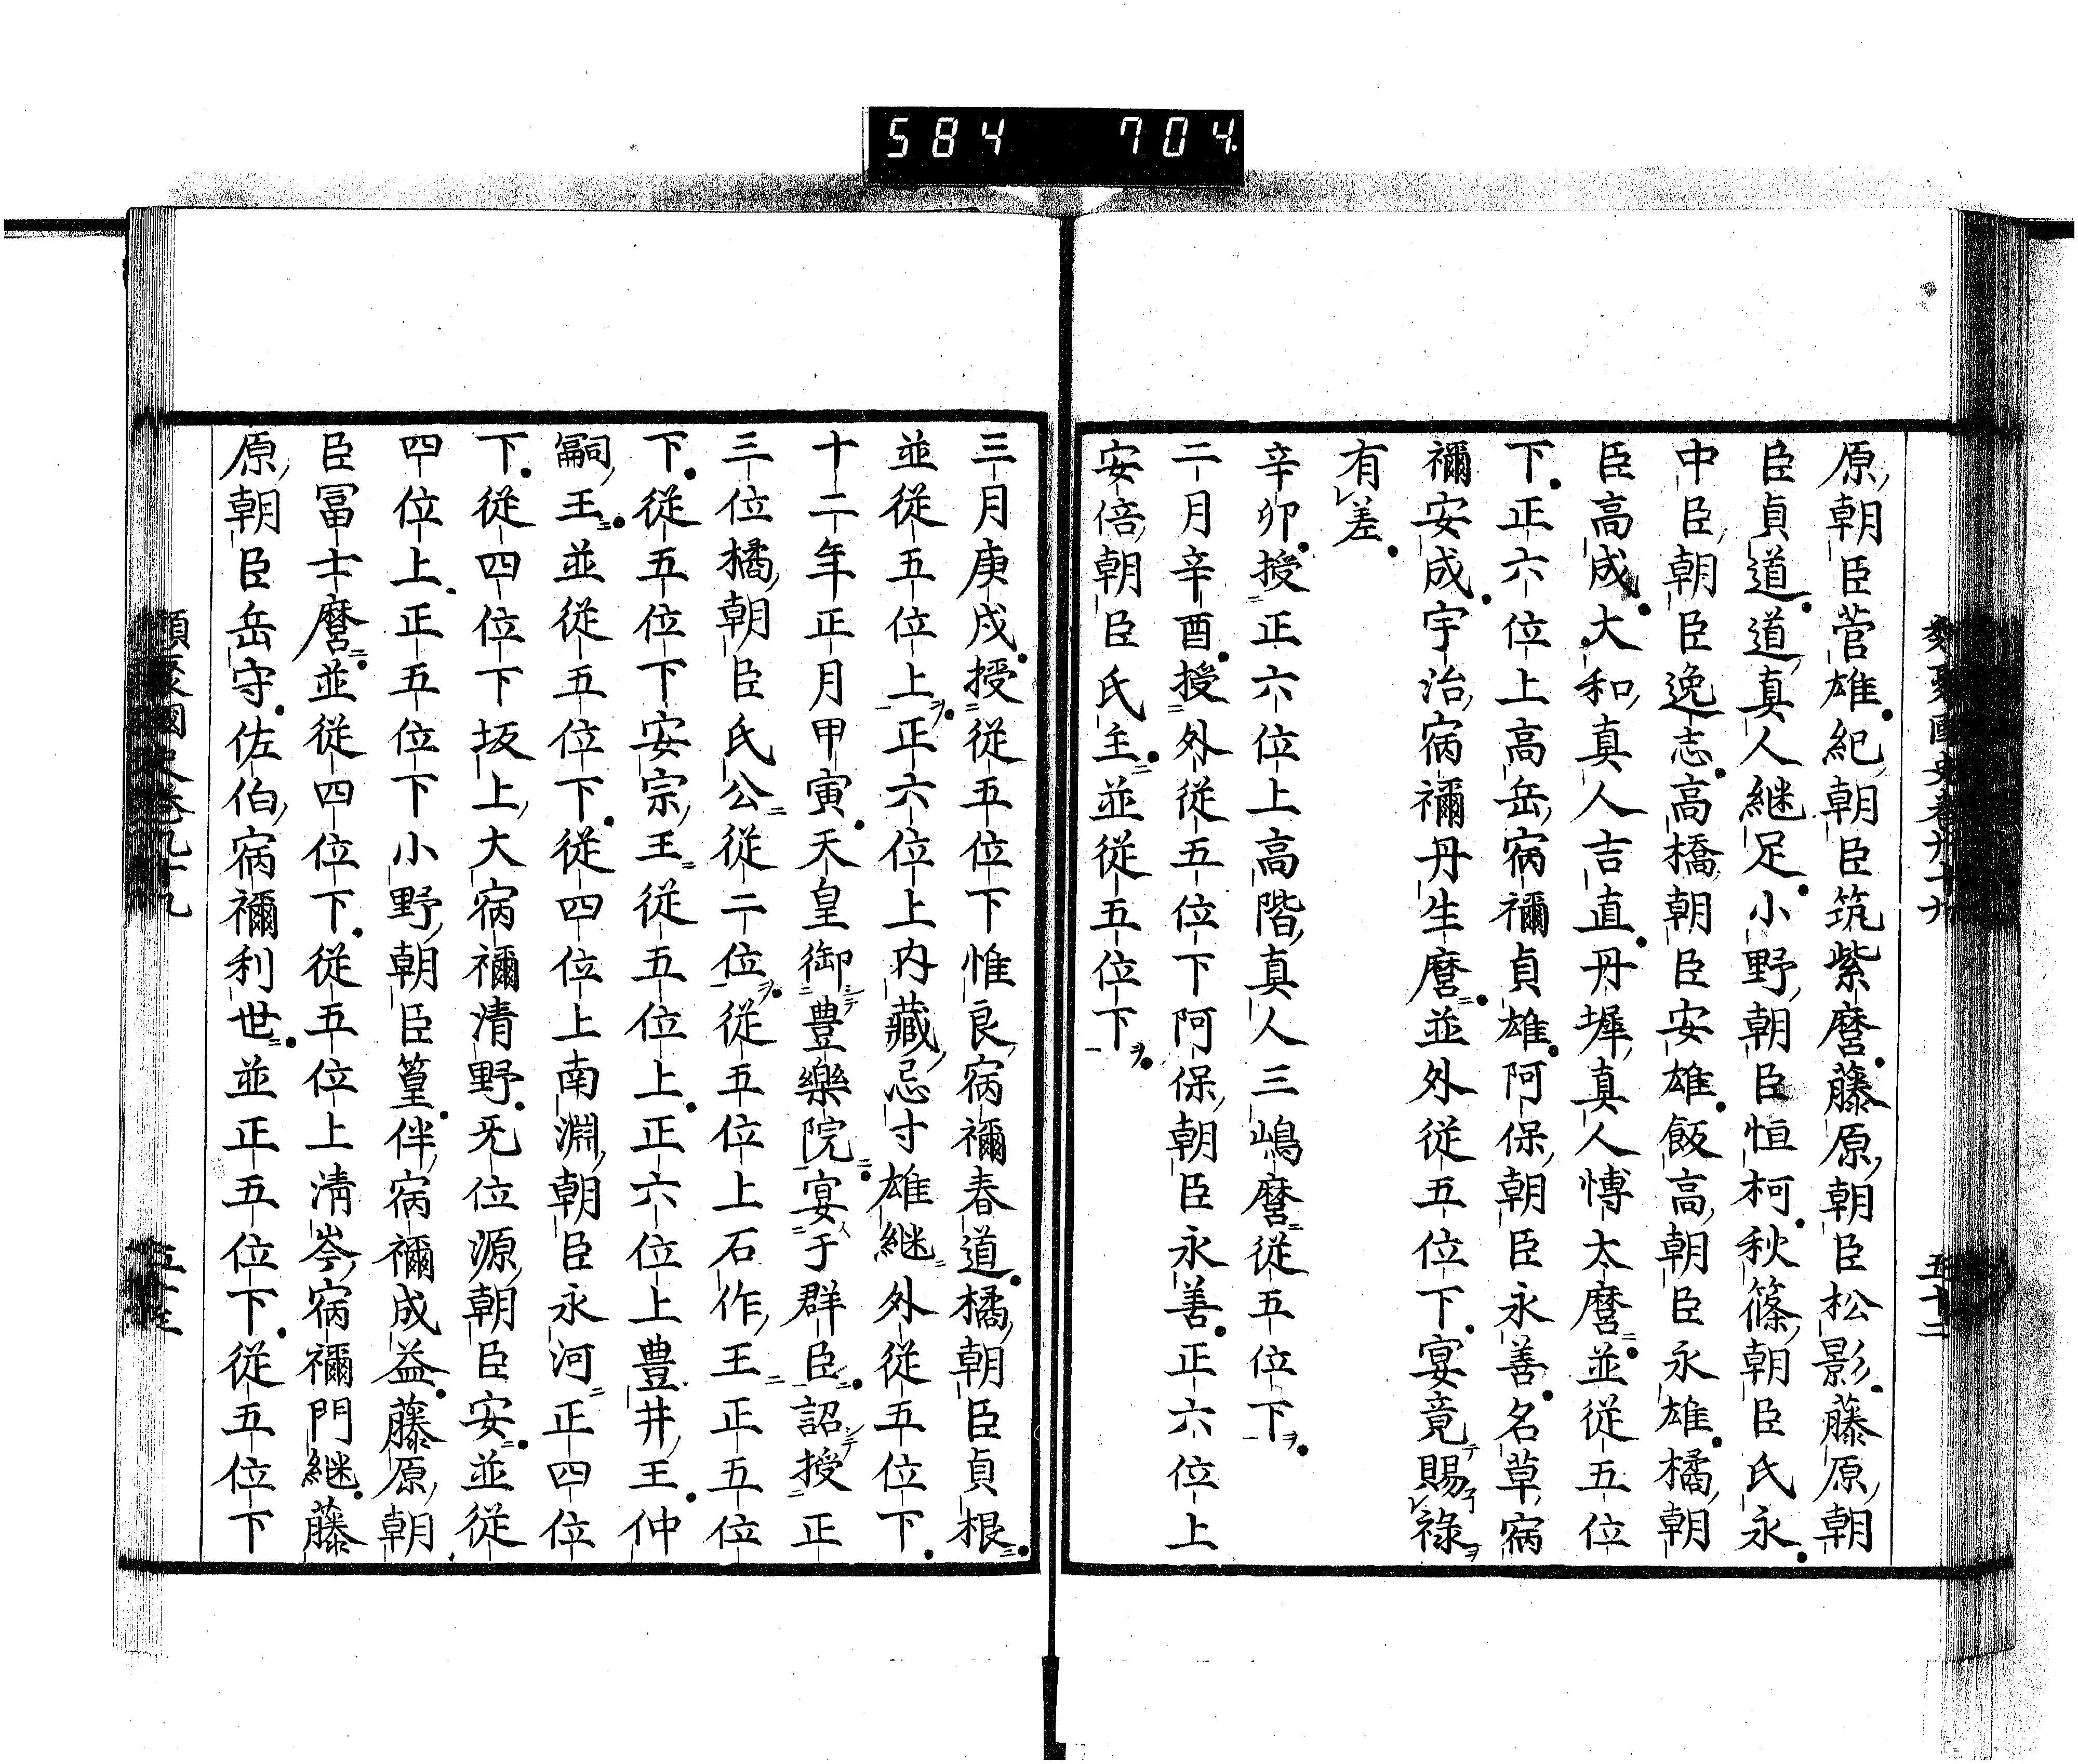 584 704
原朝臣菅雄紀朝臣筑紫麿藤原朝臣松影藤原朝
臣貞道道真人継足小野朝臣恒柯秋篠朝臣氏永
中臣朝臣逸志高橋朝臣安雄飯高朝臣永雄橘朝
臣高成大和真人吉直丹墀真人博太麿並従五位
下正六位上高岳宿禰貞雄阿保朝臣永善名草宿
禰安成宇治宿禰丹生麿並外従五位下宴竟賜禄
有差
辛卯授正六位上高階真人三嶋麿従五位下
二月辛酉授外従五位下阿保朝臣永善正六位上
安倍朝臣氏主並従五位下
三月庚戌授従五位下惟良宿禰春道橘朝臣貞根
並従五位上正六位上内藏忌寸雄継外従五位下
十二年正月甲寅天皇御豊樂院宴于群臣詔授正
三位橘朝臣氏公従二位従五位上石作王正五位
下従五位下安宗王従五位上正六位上豊井王仲
嗣王並従五位下従四位上南淵朝臣永河正四位
下従四位下坂上大宿禰清野无位源朝臣安並従
四位上正五位下小野朝臣篁伴宿禰成益藤原朝
臣冨士麿並従四位下従五位上清岑宿禰門継藤
原朝臣岳守佐伯宿禰利世並正五位下従五位下